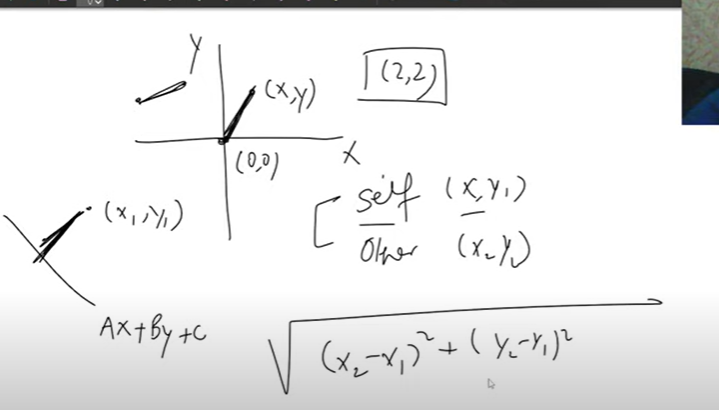 Y
(x,y)
(2,2)
(0,0)
X
(x₁,y₁)
self (x,y₁)
other (x₂y₂)
Ax+By+C
√(x₂-x₁)²+(y₂-y₁)²